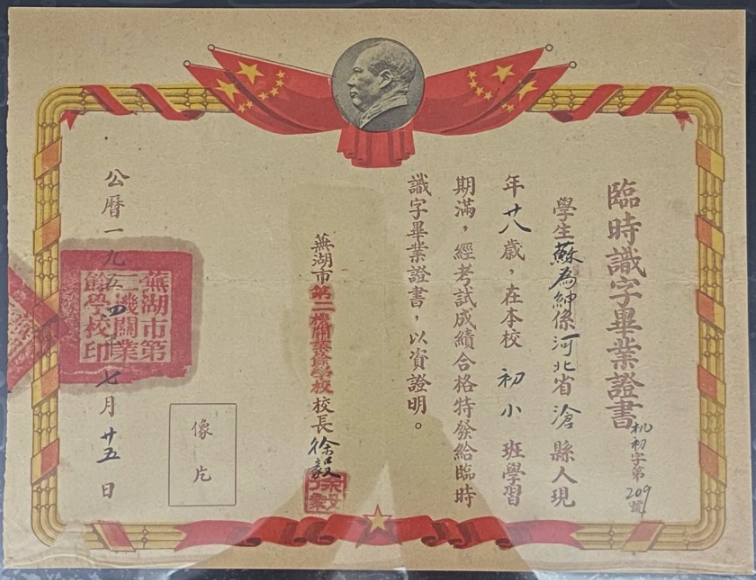 臨時識字畢業證書
机初字第209號
學生蘇為紳係河北省滄縣人現
年廿八歲，在本校初小班學習
期滿，經考試成績合格特發給臨時
識字畢業證書，以資證明。
蕪湖市第二機關業餘學校校長徐毅
徐毅
像片
公曆一九五四年七月廿五日
蕪湖市第
二機關業
餘學校印